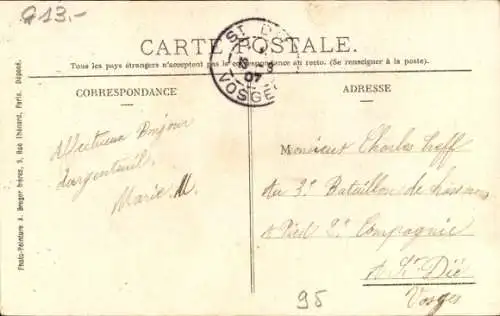 913.-
CARTE POSTALE.
Tous les pays étrangers n'acceptent pas la correspondance au recto. (Se renseigner à la poste).
CORRESPONDANCE
Affectueux Bonjour
d'argenteuil.
Marie M.
ADRESSE
Monsieur Charles
Au 3e Bataillon de
à Pied 2e Compagnie
A St Dié
Vosges
95
ST DIÉ
07
VOSGES
Photo-Peinture A. Breger frères, 9, Rue Thénard, Paris. Déposé.